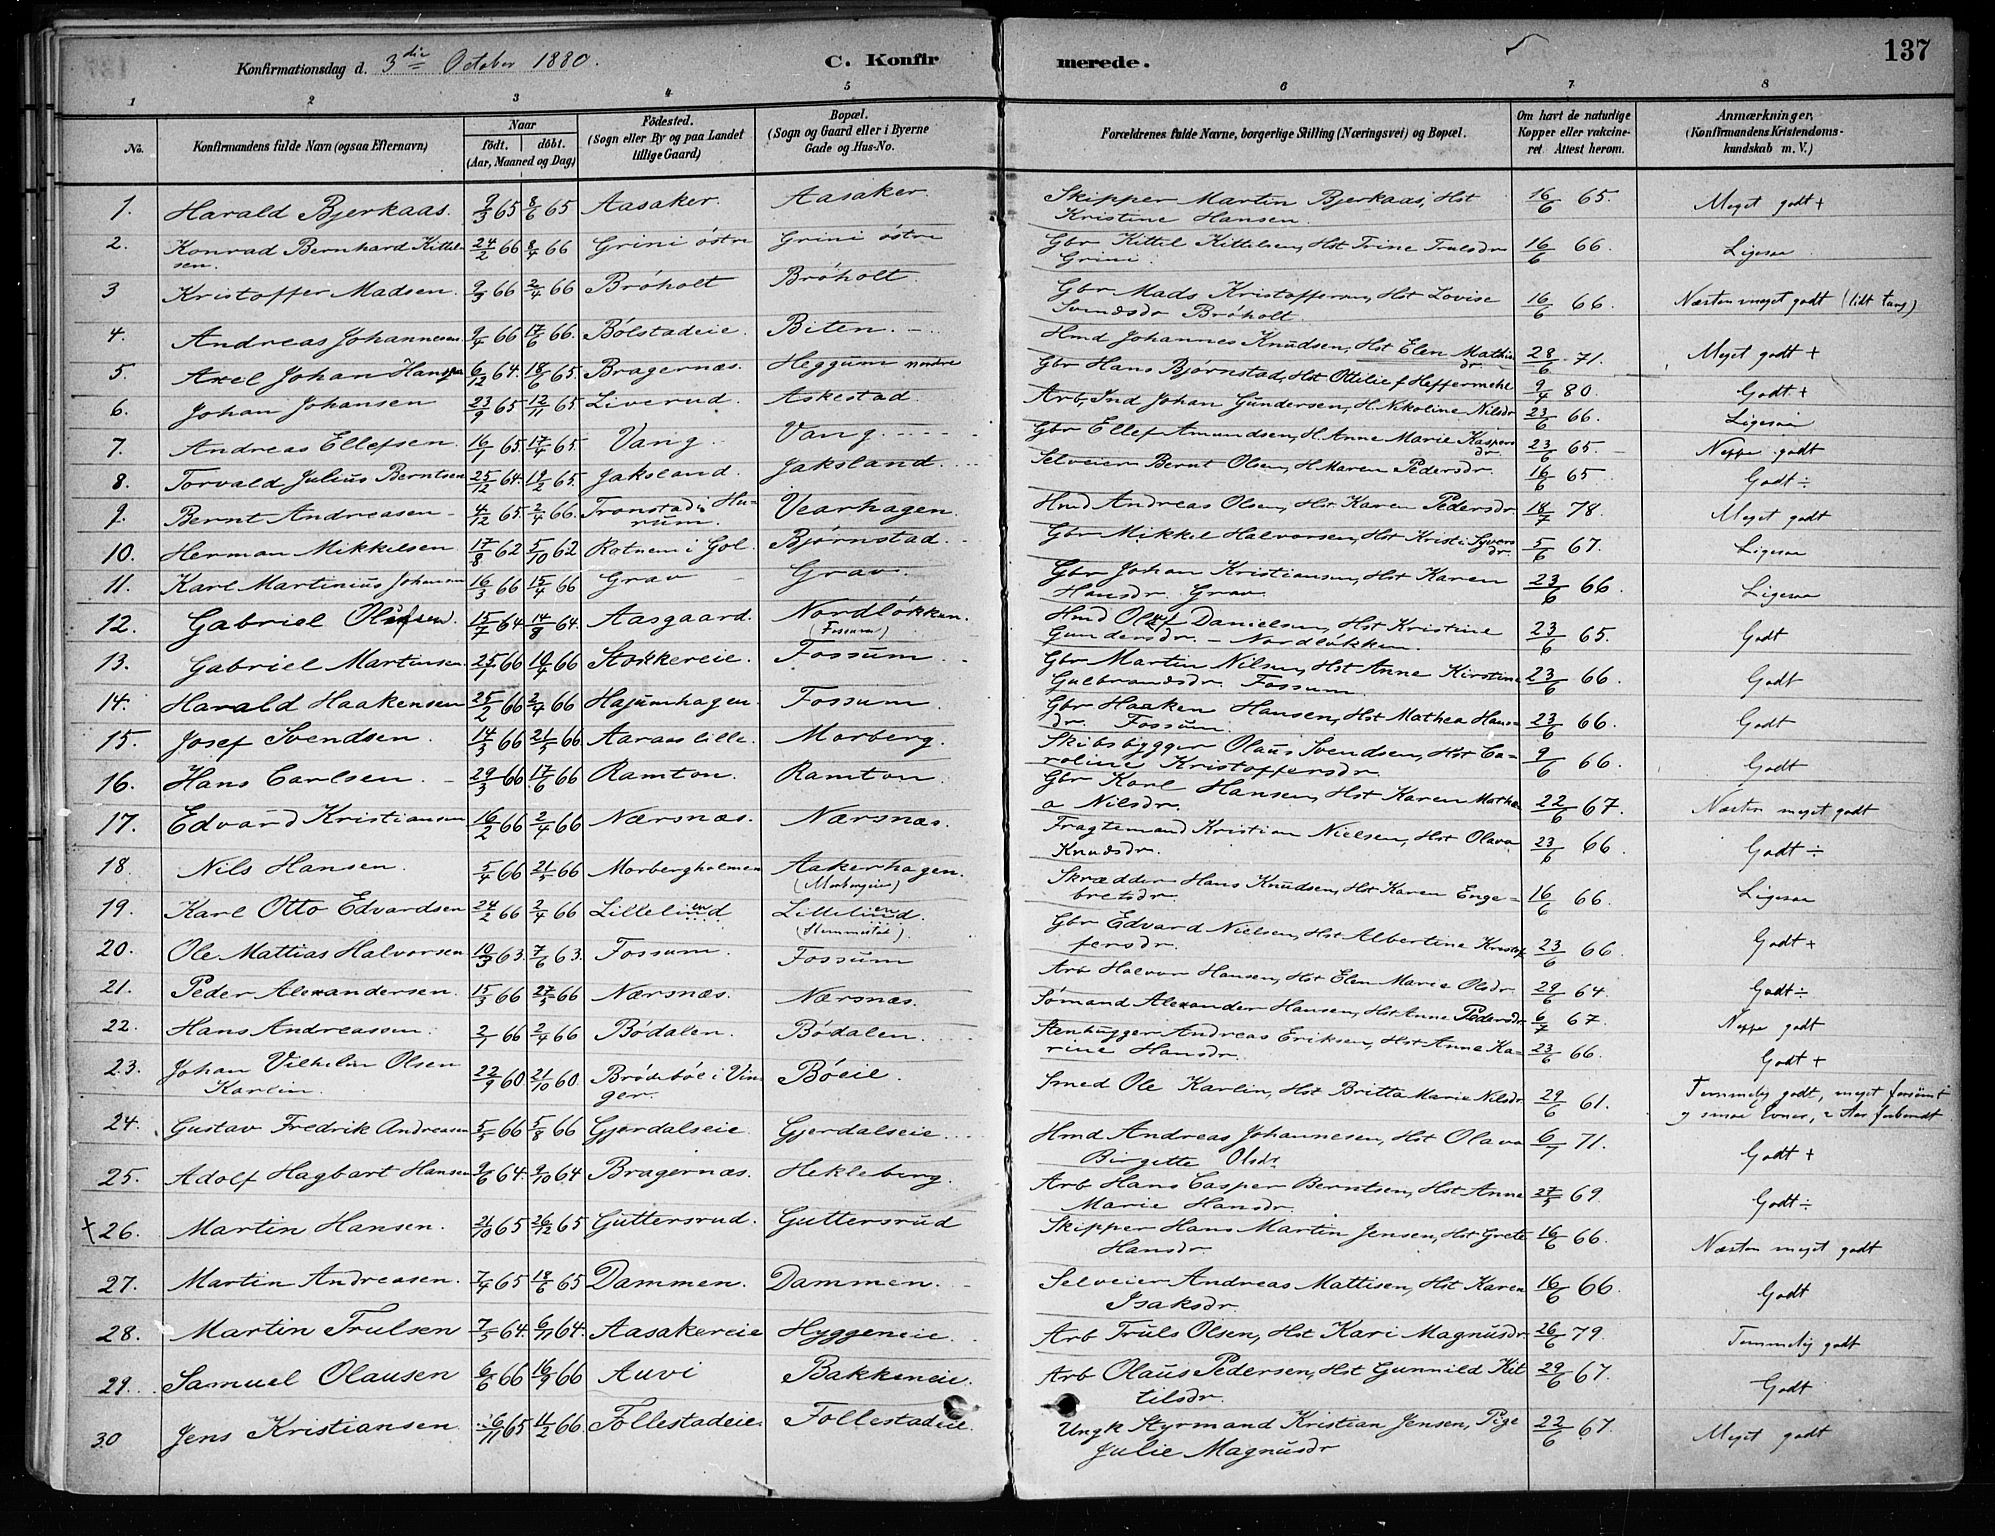 Konfirmationsdag d. 3die October 1880. C. Konfirmerede. 137
1 2 3 4 5 6 7 8
No. Konfirmandens fulde Navn (ogsaa Efternavn) Naar født. døbt. (Aar, Maaned og Dag) Födested. (Sogn eller By og paa Landet tillige Gaard) Bopæl. (Sogn og Gaard eller i Byerne Gade og Hus-No. Forældrenes fulde Navne, borgerlige Stilling (Næringsvei) og Bopæl. Om havt de naturlige Kopper eller vakcineret Attest herom. Anmærkninger, (Konfirmandens Kristendomskundskab m. V.)
1. Harald Bjerkaas. 9/3 65 8/6 65 Aasaker. Aasaker Skipper Martin Bjerkaas, Hst Kristine Hansen. 16/6 65. Meget godt +
2. Konrad Bernhard Kittelsen. 24/2 66 8/4 66 Grini östre Grini östre Gbr Kittel Kittelsen, Hst Trine Trulsdr Grini. 16/6 66. Ligesaa
3 Kristoffer Madsen. 9/3 66 2/4 66 Bröholt Bröholt Gbr Mads Kristoffersen, Hst Lovise Svendsdr Bröholt. 16/6 66. Næsten meget godt (lidt tung)
4. Andreas Johannesen 9/4 66 17/6 66. Bölstadeie. Biten. Hmd Johannes Knudsen, Hst Elen Mathisdr. 28/6 71. Meget godt +
5. Axel Johan Hansen 6/12 64. 18/6 65. Bragernæs. Heggum nordre Gbr Hans Bjørnstad, Hst Ottilie f Heffermehl 9/4 80 Godt +
6. Johan Johansen 23/9 65 12/11 65 Liverud. Askestad. Arb, Ind Johan Gundersen, H. Nikoline Nilsdr 23/6 66. Ligesaa
7. Andreas Ellefsen. 16/1 65. 17/4 65. Vang. Vang. Gbr Ellef Amundsen, H. Anne Marie Kaspersdr. 23/6 65. Neppe godt
8. Torvald Julius Berntsen 25/12 64. 19/2 65. Jaksland. Jaksland. Selveier Bernt Olsen, H Maren Pedersdr. 16/6 65. Godt ÷
9. Bernt Andreasen 4/12 65. 2/4 66. Tronstad i Hurum. Vearhagen. Hmd Andreas Olsen, Hst Karen Pedersdr. 18/7 78. Meget godt
10. Herman Mikkelsen 17/8 62 5/10 62 Rotnem i Gol. Bjørnstad. Gbr Mikkel Halvorsen, Hst Kristi Syversdr. 5/6 67. Ligesaa
11. Karl Martinius Johansen 16/3 66 15/4 66 Grav Grav. Gbr Johan Kristiansen, Hst Karen Hansdr. Grav. 23/6 66 Ligesaa
12. Gabriel Olsen. 15/7 64 14/8 64. Aasgaard. Nordlökken. (Fossum) Hmd Danielsen, Hst Kristine Gundersdr. - Nordlökken. 23/6 65. Godt
13. Gabriel Martinsen 25/1 66 19/4 66 Stokkereie. Fossum Gbr Martin Nilsen, Hst Anne Kirstine Gulbrandsdr. Fossum. 23/6 66. Godt
14. Harald Haakensen 25/2 66 2/4 66 Hajumhagen. Fossum. Gbr Haaken Hansen, Hst Mathea Hansdr. Fossum. 23/6 66. Godt
15. Josef Svendsen. 14/3 66 21/5 66 Aaraas lille. Morberg. Skibsbygger Olaus Svendsen, Hst Caroline Kristoffersdr. 9/6 66. Godt
16. Hans Carlsen. 29/3 66. 17/6 66 Ramton. Ramton. Gbr Karl Hansen, Hst Karen Mathea Nilsdr. 22/6 67. Næsten meget godt
17. Edvard Kristiansen 16/2 66 2/4 66 Nærsnæs. Nærsnæs. Fragtemand Kristian Nielsen, Hst Olava Knudsdr. 23/6 66. Godt ÷
18. Nils Hansen. 5/4 66 21/5 66 Morbergholmen Aakerhagen. (Morbergeie) Skrædder Hans Knudsen, Hst Karen Engebretsdr. 16/6 66. Ligesaa
19. Karl Otto Edvardsen 24/2 66 2/4 66 Lillelund Lillelund. Gbr Edvard Nielsen, Hst Albertine Kristoffersdr. 23/6 66. Godt +
20. Ole Mattias Halvorsen 19/3 63. 7/6 63. Fossum. Fossum Arb Halvor Hansen, Hst Elen Marie Olsdr. 29/6 64. Godt ÷
21. Peder Alexandersen. 15/3 66 27/5 66 Nærsnæs. Nærsnæs. Sømand Alexander Hansen, Hst Anne Pedersdr. 6/7 67. Neppe godt
22. Hans Andreassen. 2/1 66 2/4 66 Bödalen. Bödalen. Stenhugger Andreas Eriksen, Hst Anne Karine Hansdr. 23/6 66. Godt +
23. Johan Vilhelm Olsen Karlin. 22/9 60 21/10 60. Brödeböl i Vinger. Böeie. Smed Ole Karlin, Hst Britta Marie Nilsdr 29/6 61. Temmelig godt, meget forsömt og smaa Evner, 2 Aar forberedt
24. Gustav Fredrik Andreasen 5/5 66 5/8 66 Gjerdalseie. Gjerdalseie. Hmd Andreas Johannesen, Hst Olava Birgitte Olsdr. 6/7 71. Godt +
25. Adolf Hagbart Hansen 2/6 64. 9/10 64 Bragernæs. Hekleberg. Arb Hans Casper Berntsen, Hst Anne Marie Hansdr. 27/5 69. Godt ÷
+ 26. Martin Hansen. 21/10 65 26/12 65 Guttersrud. Guttersrud Skipper Hans Martin Jensen, Hst Grete Hansdr. 16/6 66. Næsten meget godt
27. Martin Andreasen. 7/4 65 18/6 65 Dammen. Dammen. Selveier Andreas Mattisen, Hst Karen Isaksdr. 16/6 66 Godt
28. Martin Trulsen 7/5 64. 6/11 64. Aasakereie Hyggeneie. Arb Truls Olsen, Hst Kari Magnusdr. 26/6 79. Temmelig godt
29. Samuel Olausen 6/6 66 16/9 66 Auvi Bakkeneie. Arb Olaus Pedersen, Hst Gunnild Kittilsdr. 29/6 67. Godt
30 Jens Kristiansen 6/11 65 11/2 66 Follestadeie. Follestadeie. Ungk Styrmand Kristian Jensen, Pige Julie Magnusdr 22/6 67. Meget godt